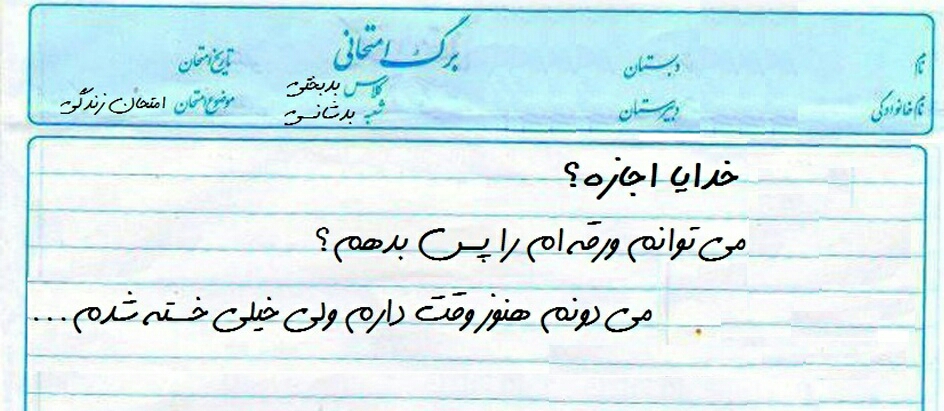 برگ امتحانی
نام
دبستان
تاریخ امتحان
کلاس بدبختی
نام خانوادگی
دبیرستان
شعبه بدشانسی
موضوع امتحان امتحان زندگی
خدایا اجازه؟
می توانم ورقه ام را پس بدهم؟
می دونم هنوز وقت دارم ولی خیلی خسته شدم...